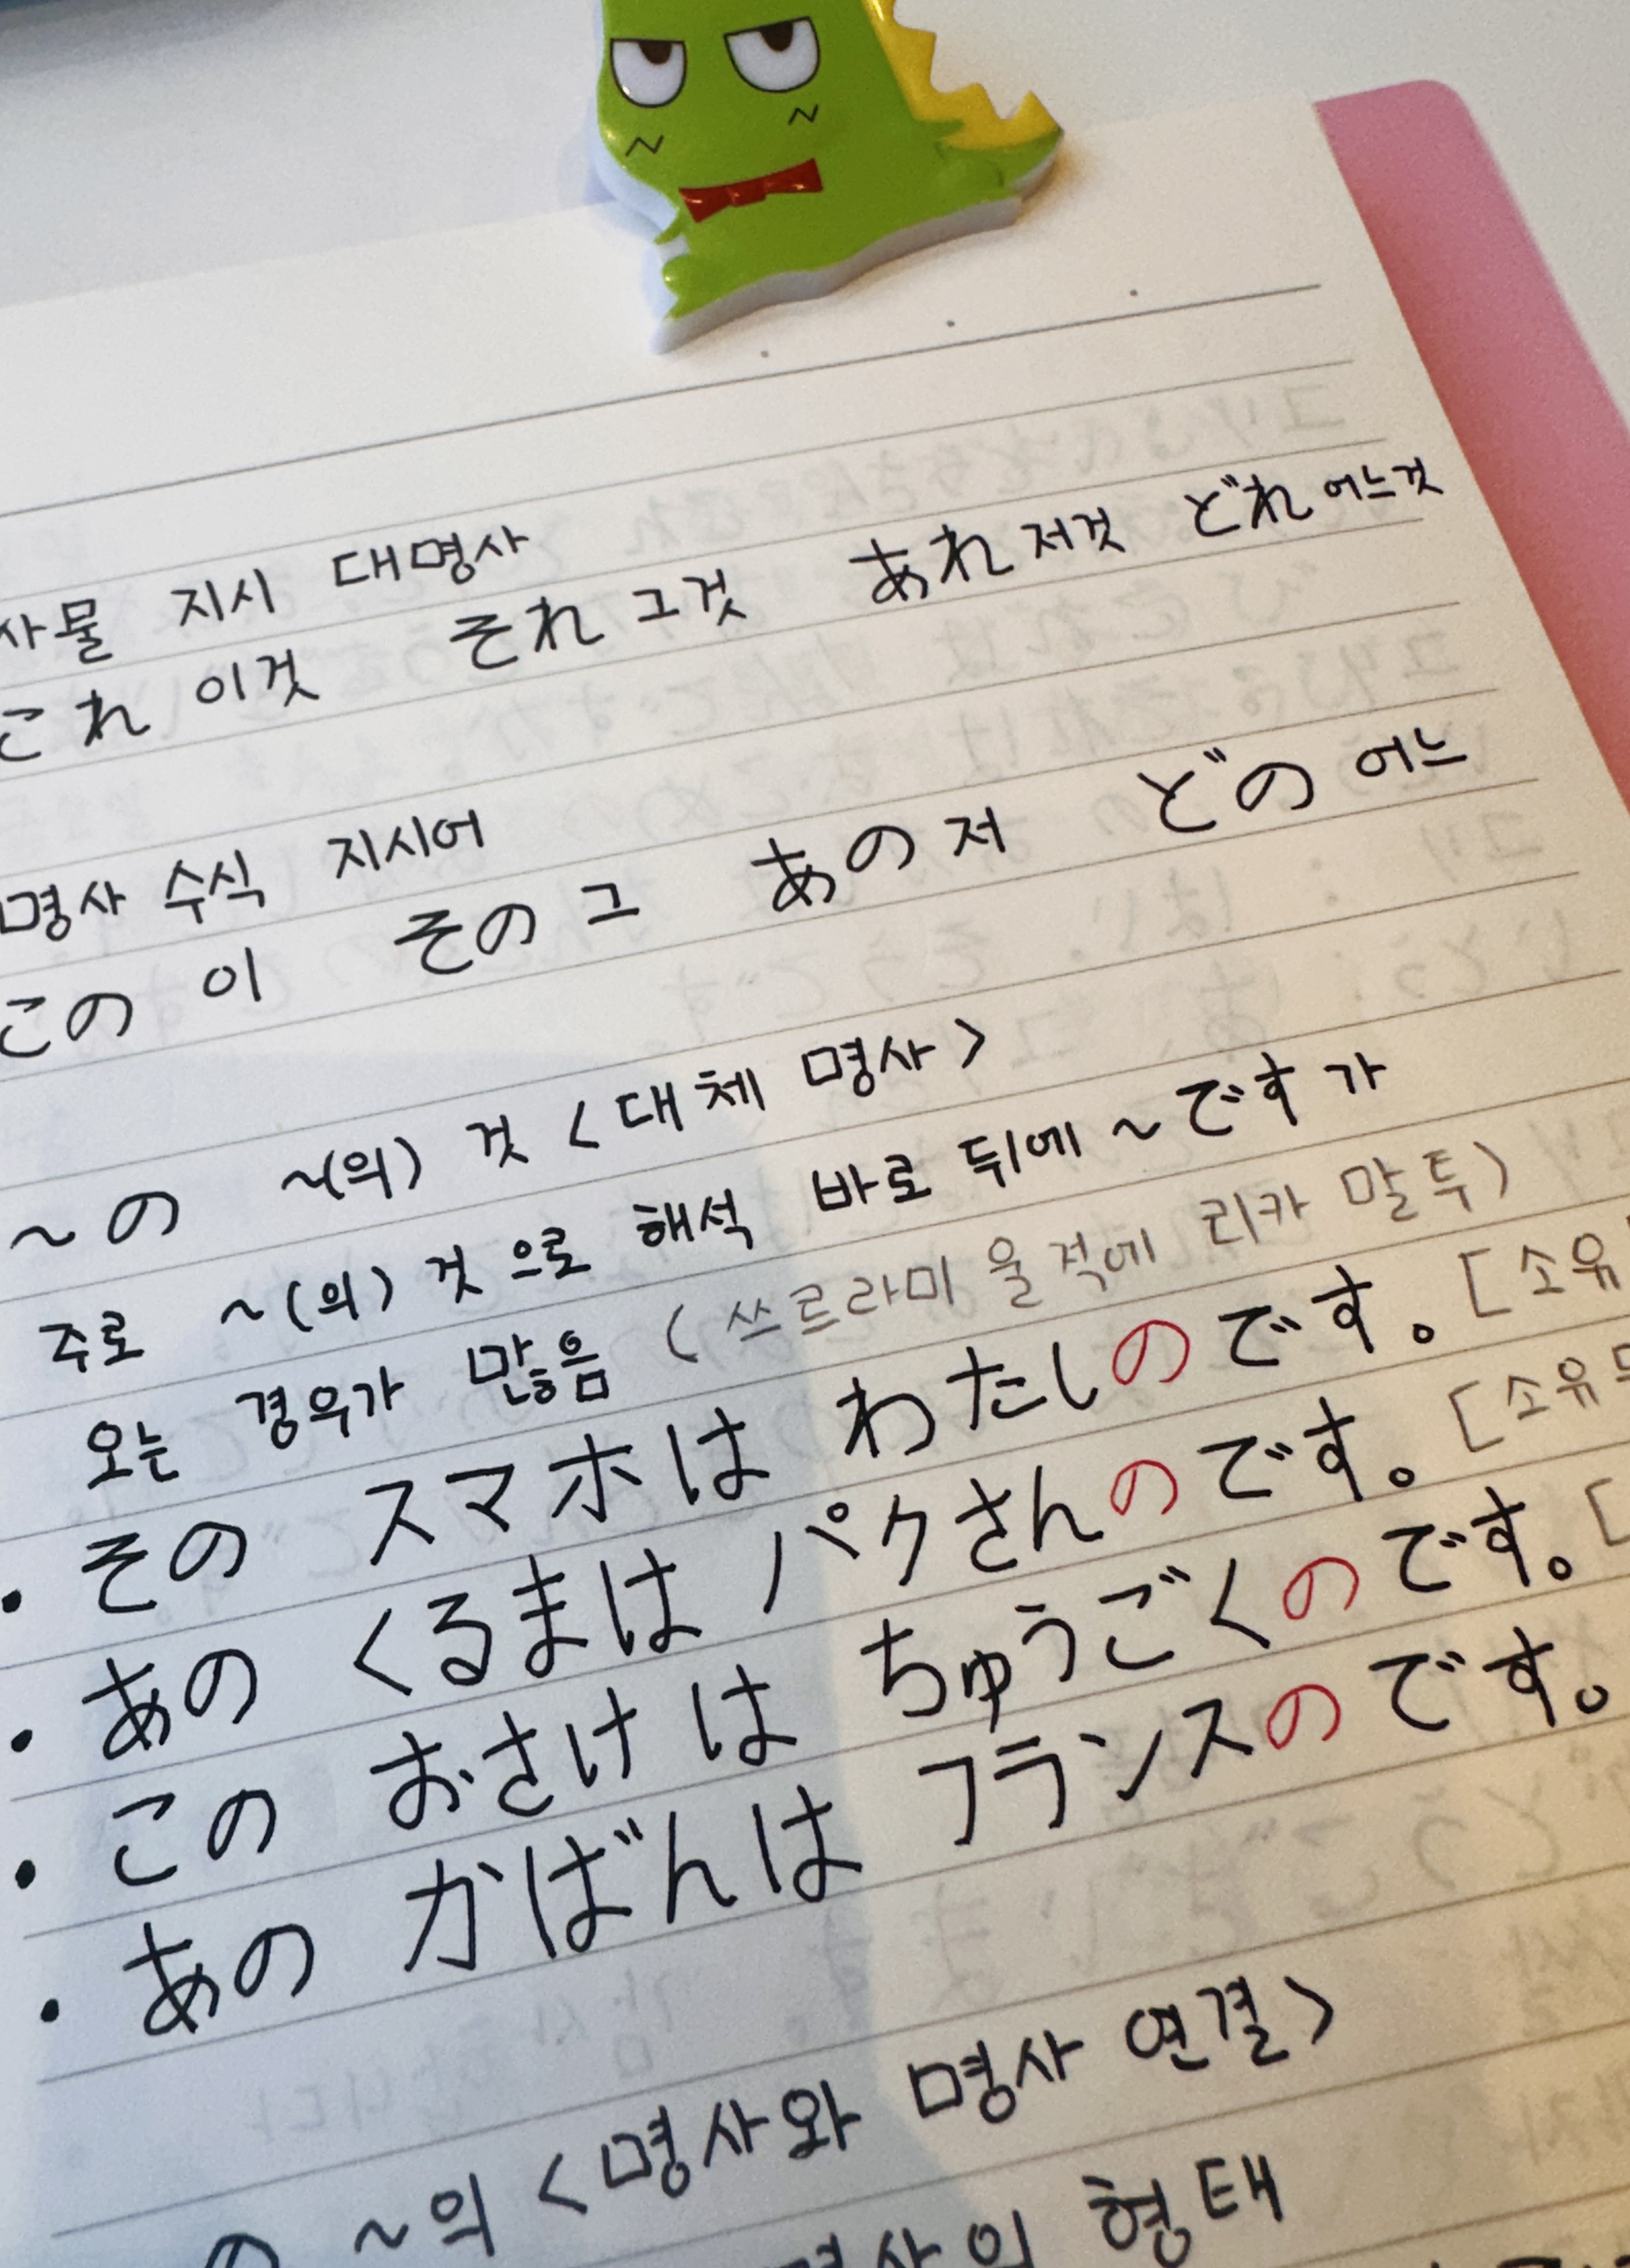 사물 지시 대명사
これ 이것 それ 그것 あれ 저것 どれ 어느것
명사 수식 지시어
この 이 その 그 あの 저 どの 어느
~の ~(의) 것 <대체 명사>
주로 ~(의) 것으로 해석 바로 뒤에 ~です가
오는 경우가 많음 (쓰르라미 울적에 리카 말투)
・その スマホは わたしのです。[소유
・あの くるまは パクさんのです。[소유
・この おさけは ちゅうごくのです。[
・あの かばんは フランスのです。
の ~의 <명사와 명사 연결>
명사의 형태